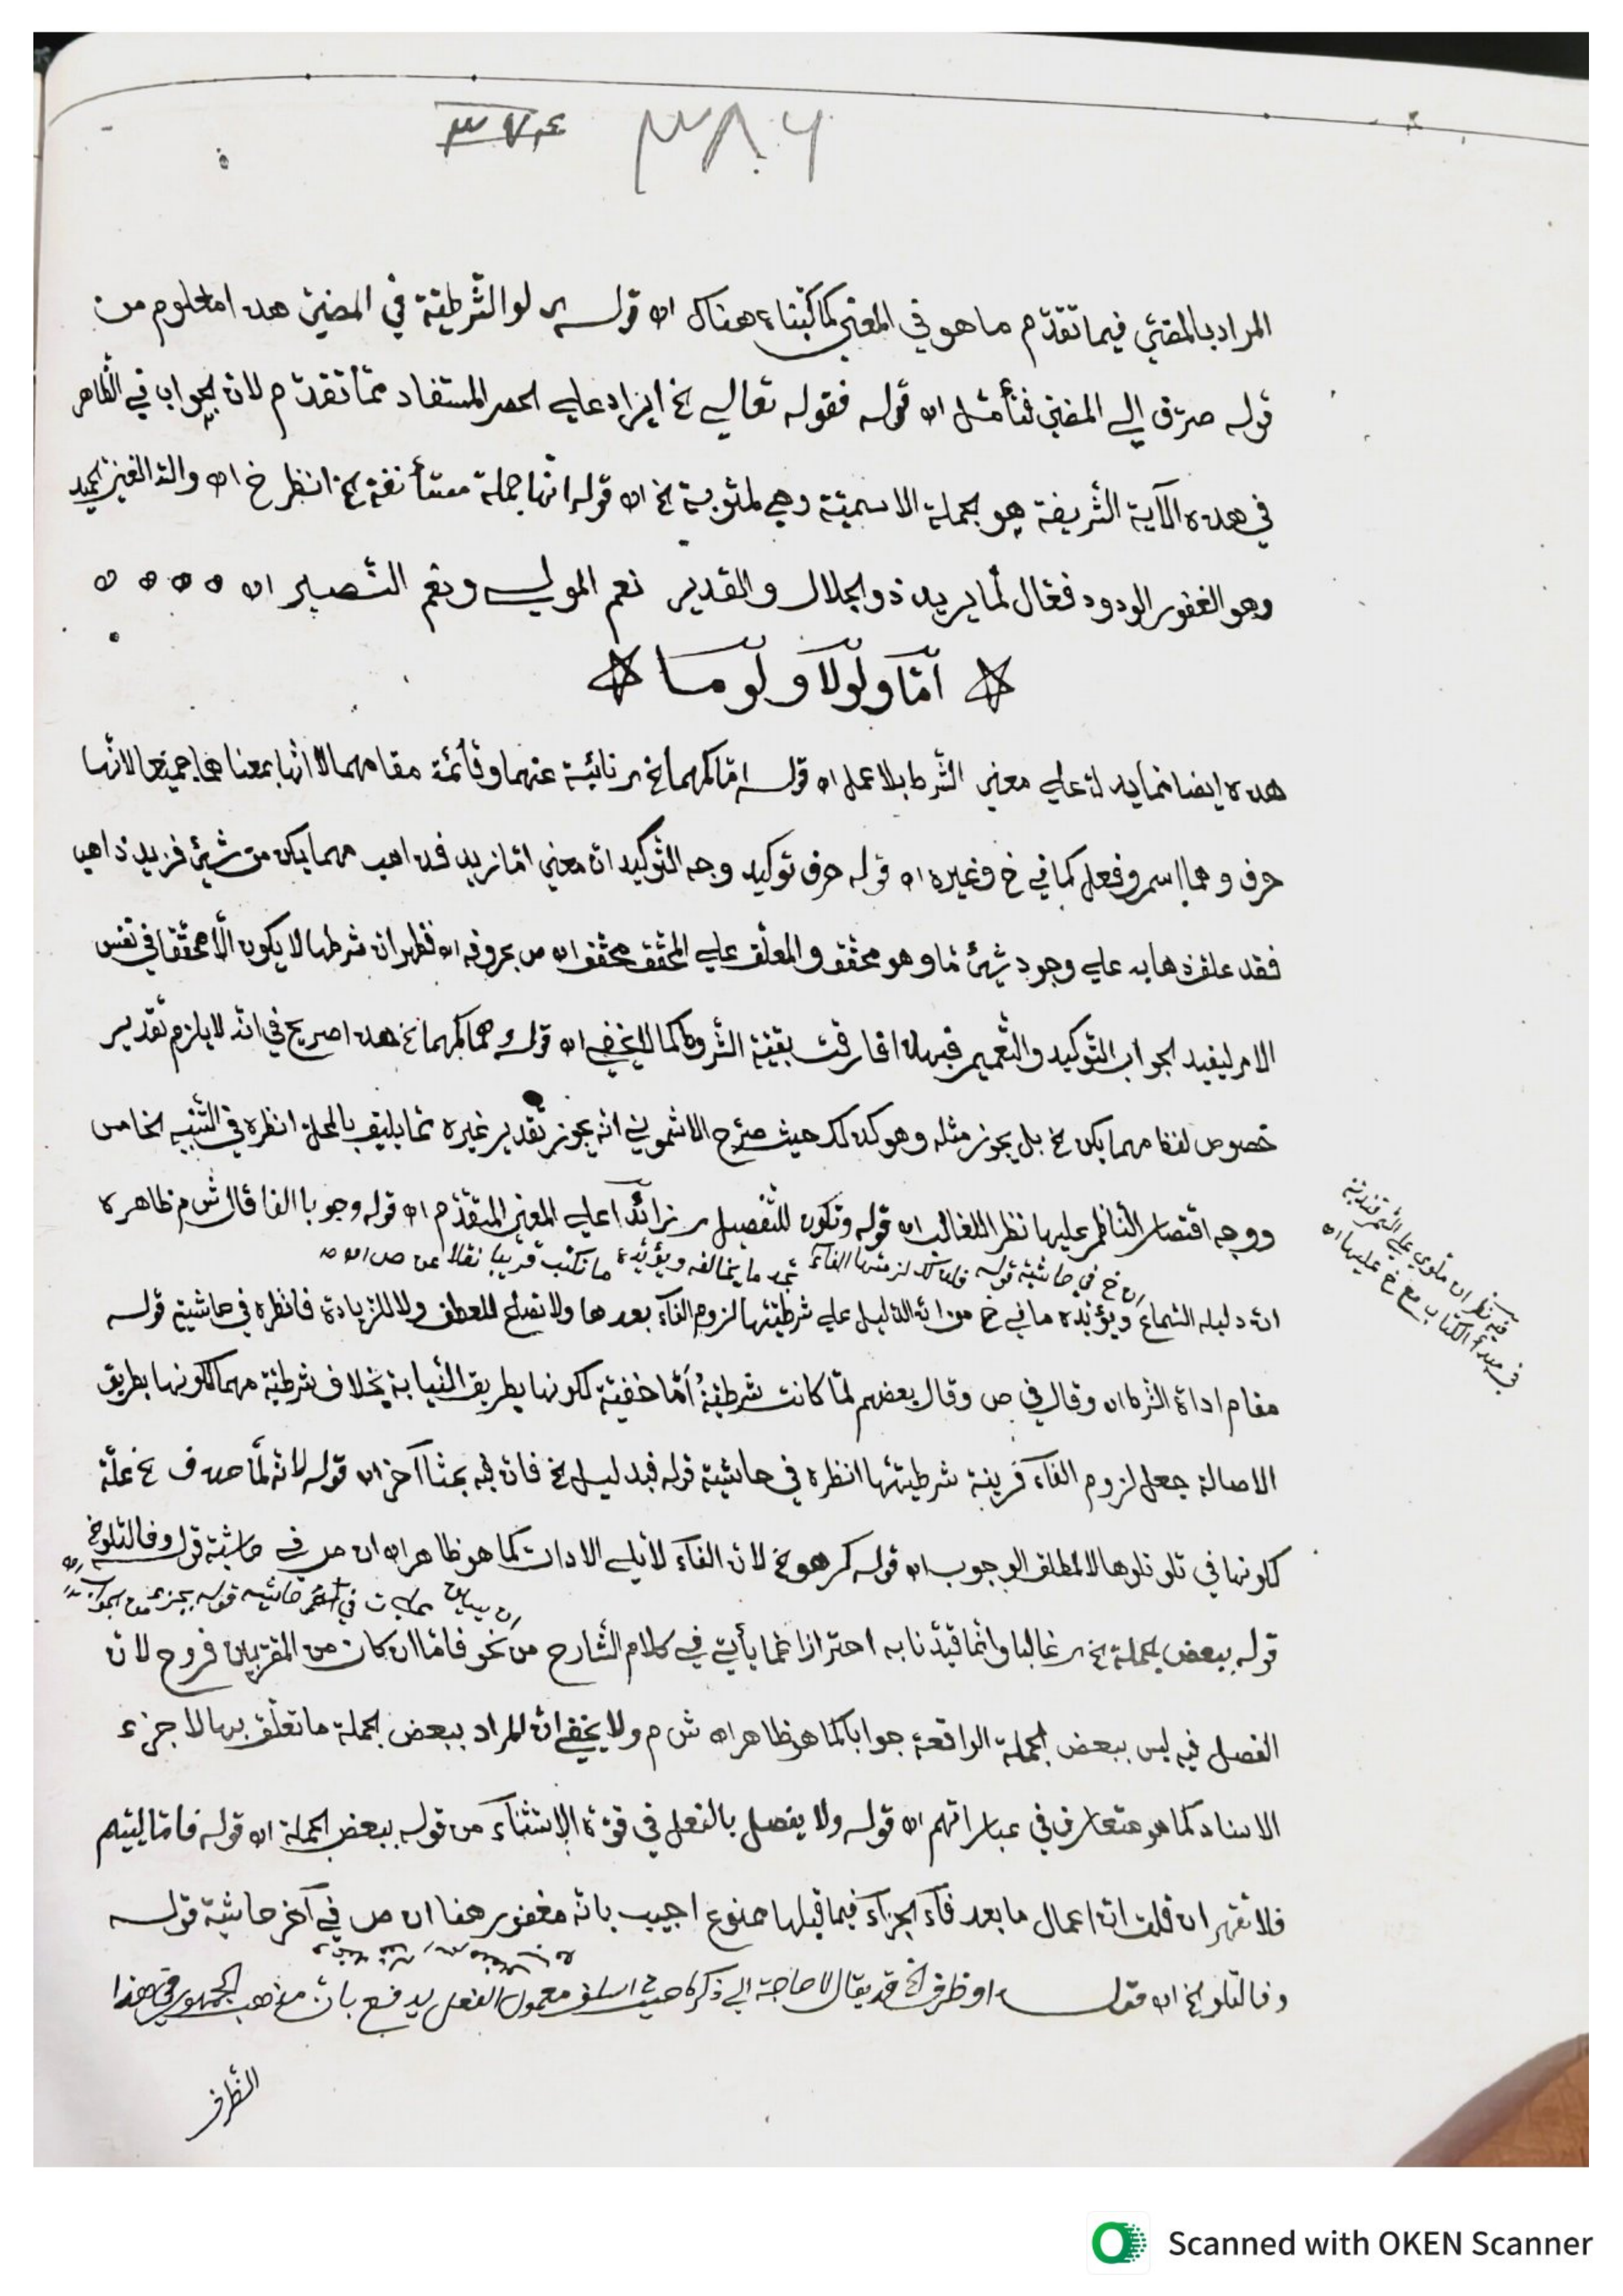 ٣٧٤ ٣٨٦
المراد بالمضي فيما تقدّم ما هو في المعنى كما كتبناه هناك اه قوله لو الشرطية في المضي هذا معلوم من
قوله صرف إلى المضي فتأمّل اه قوله فقوله تعالى الخ ايراد على الحصر المستفاد ممّا تقدّم لان الجواب في الظاهر
في هذه الآية الشريفة هو الجملة الاسميّة وهي لمثوبة الخ اه قوله انّها جملة مستأنفة الخ انظر خ اه والله العزيز الحميد
وهو الغفور الودود فعّال لما يريد ذو الجلال والقدير نعم المولى ونعم النّصير اه
امّا ولولا ولوما
هذه ايضا ممّا يدلّ على معنى الشرط بلا عمل اه قوله امّا كمهما الخ نائبة عنهما وقائمة مقامهما لا انّها بمعناهما جميعا لانّها
حرف وهما اسم وفعل كما في خ وغيره اه قوله حرف توكيد وجه التّوكيد انّ معنى امّا زيد فذاهب مهما يكن من شيئ فزيد ذاهب
فقد علق ذهابه على وجود شيئ مّا وهو محقّق والمعلّق على المحقّق محقّق اه فظهر ان شرطها لا يكون الّا محقّقا في نفس
الامر ليفيد الجواب التّوكيد والتّعميم فبهذا فارقت بقيّة الشّروط كما لا يخفى اه قوله كمهما الخ هذا صريح في انّه لا يلزم تقدير
خصوص لفظ مهما يكن الخ بل يجوز مثله وهو كذلك حيث صرّح الاشموني انّه يجوز تقدير غيره ممّا يليق بالمحلّ انظره في التّنبيه الخامس
ووجه اقتصار النّاظم عليها نظر للغالب اه قوله وتكون للتّفصيل زائدا على المعنى المتقدّم اه قوله وجوبا الفا قال ش م ظاهره
خ في حاشية قوله لزمتها الفاء تجد ما يخالفه ويؤيّده ما نكتب قريبا نقلا عن ص اه
انّ دليله السّماع ويؤيّده ما في خ من انّ الدّليل على شرطيّتها لزوم الفاء بعدها ولا تصلح للعطف ولا للزيادة فانظره في حاشية قوله
مقام اداة الشرط اه وقال في ص وقال بعضهم لمّا كانت شرطيّة أمّا خفيّة لكونها بطريق النّيابة بخلاف شرطيّة مهما لكونها بطريق
الاصالة جعل لزوم الفاء قرينة شرطيّتها انظره في حاشية قوله فبدليل الخ فان فيه بحثا آخر اه قوله لانّه لمّا حذف الخ علّة
لكونها في تلو تلوها لا لمطلق الوجوب اه قوله كرهو الخ لان الفاء لا يلي الادات كما هو ظاهر اه ص في حاشية قوله وفا لتلو الخ
قوله ببعض الجملة الخ غالبا وانّما قيّدنا به احترازا عمّا يأتي في كلام الشّارح من نحو فامّا ان كان من المقرّبين فروح لان
الفصل فيه ليس ببعض الجملة الواقعة جوابا كما هو ظاهر اه ش م ولا يخفى انّ المراد ببعض الجملة ما تعلّق بها لا جزء
الاسناد كما هو متعارف في عباراتهم اه قوله ولا يفصل بالفعل في قوّة الاستثناء من قوله ببعض الجملة اه قوله فامّا اليتيم
فلا تقهر ان قلت انّ اعمال ما بعد فاء الجزاء فيما قبلها ممنوع اجيب بانّه مغفور هنا اه ص في آخر حاشية قوله
وفا لتلو الخ اه قوله او ظرف الخ قد يقال لا حاجة الى ذكره معمول الفعل يدفع بانّ مذهب الجمهور في هذا
الظرف
فيه نظر ملوي على السّمرقنديّة
في مبدأ الكتاب مع خ عليها اه
Scanned with OKEN Scanner